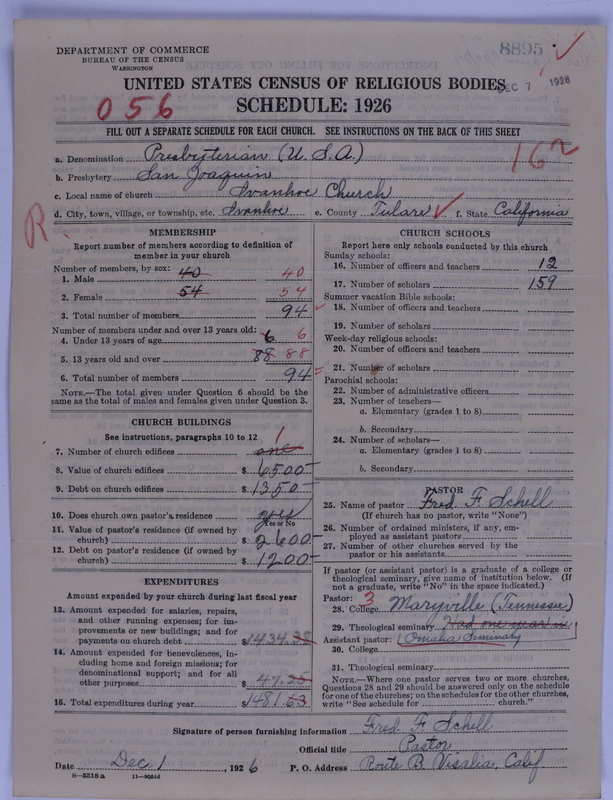 DEPARTMENT OF COMMERCE
BUREAU OF THE CENSUS
WASHINGTON
8895
DEC 7 1926
UNITED STATES CENSUS OF RELIGIOUS BODIES
SCHEDULE: 1926
056
FILL OUT A SEPARATE SCHEDULE FOR EACH CHURCH. SEE INSTRUCTIONS ON THE BACK OF THIS SHEET
162
a. Denomination Presbyterian (U.S.A.)
b. Presbytery San Joaquin
c. Local name of church Ivanhoe Church
d. City, town, village, or township, etc. Ivanhoe e. County Tulare f. State California
R
MEMBERSHIP
Report number of members according to definition of
member in your church
Number of members, by sex:
1. Male 40 40
2. Female 54 54
3. Total number of members 94
Number of members under and over 13 years old:
4. Under 13 years of age 6 6
5. 13 years old and over 88 88
6. Total number of members 94
NOTE.—The total given under Question 6 should be
same as the total of males and females given under Question 3.
CHURCH BUILDINGS
See instructions, paragraphs 10 to 12
7. Number of church edifices one 1
8. Value of church edifices $ 6500-
9. Debt on church edifices $ 1350-
10. Does church own pastor's residence yes
Yes or No
11. Value of pastor's residence (if owned by
church) $ 2600-
12. Debt on pastor's residence (if owned by
church) $ 1200-
EXPENDITURES
Amount expended by your church during last fiscal year
13. Amount expended for salaries, repairs,
and other running expenses; for im-
provements or new buildings; and for
payments on church debt $ 1434.38
14. Amount expended for benevolences, in-
cluding home and foreign missions; for
denominational support; and for all
other purposes $ 47.25
15. Total expenditures during year $ 1481.63
CHURCH SCHOOLS
Report here only schools conducted by this church
Sunday schools:
16. Number of officers and teachers 12
17. Number of scholars 159
Summer vacation Bible schools:
18. Number of officers and teachers
19. Number of scholars
Week-day religious schools:
20. Number of officers and teachers
21. Number of scholars
Parochial schools:
22. Number of administrative officers
23. Number of teachers—
a. Elementary (grades 1 to 8)
b. Secondary
24. Number of scholars—
a. Elementary (grades 1 to 8)
b. Secondary
PASTOR
25. Name of pastor Fred. F. Schell
(If church has no pastor, write "None")
26. Number of ordained ministers, if any, em-
ployed as assistant pastors
27. Number of other churches served by the
pastor or his assistants
If pastor (or assistant pastor) is a graduate of a college or
theological seminary, give name of institution below. (If
not a graduate, write "No" in the space indicated.)
Pastor: 3
28. College Maryville (Tennessee)
29. Theological seminary Had one year in
Assistant pastor: Omaha Seminary
30. College
31. Theological seminary
NOTE.—Where one pastor serves two or more churches,
Questions 28 and 29 should be answered only on the schedule
for one of the churches; on the schedules for the other churches,
write "See schedule for church."
Signature of person furnishing information Fred. F. Schell
Official title Pastor
Date Dec 1, 1926 P. O. Address Route B. Visalia, Calif
8—5518a 11—9054d